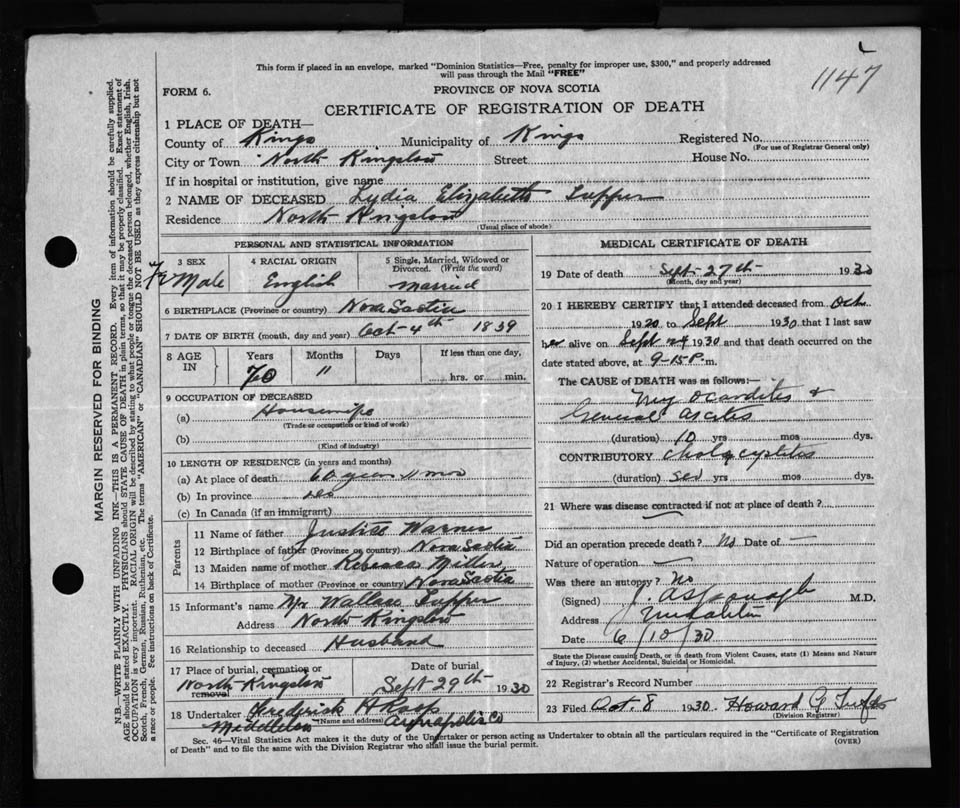 This form if placed in an envelope, marked "Dominion Statistics—Free, penalty for improper use, $300," and properly addressed
will pass through the Mail "FREE"
1147
FORM 6.
PROVINCE OF NOVA SCOTIA
CERTIFICATE OF REGISTRATION OF DEATH
1 PLACE OF DEATH—
County of Kings Municipality of Kings Registered No.
(For use of Registrar General only)
City or Town North Kingston Street House No.
If in hospital or institution, give name
2 NAME OF DECEASED Lydia Elizabeth Tupper
Residence North Kingston
(Usual place of abode)
PERSONAL AND STATISTICAL INFORMATION
3 SEX 4 RACIAL ORIGIN 5 Single, Married, Widowed or
Divorced. (Write the word)
Fe Male English Married
6 BIRTHPLACE (Province or country) Nova Scotia
7 DATE OF BIRTH (month, day and year) Oct - 4th 1839
8 AGE IN Years Months Days If less than one day,
70 11 hrs. or min.
9 OCCUPATION OF DECEASED
(a) Housewife
(Trade or occupation or kind of work)
(b)
(Kind of industry)
10 LENGTH OF RESIDENCE (in years and months)
(a) At place of death 60 years 11 mos
(b) In province
(c) In Canada (if an immigrant)
Parents
11 Name of father Warner
12 Birthplace of father (Province or country) Nova Scotia
13 Maiden name of mother Rebecca Miller
14 Birthplace of mother (Province or country) Nova Scotia
15 Informant's name Mr Wallace Tupper
Address North Kingston
16 Relationship to deceased Husband
17 Place of burial, cremation or removal Date of burial
North Kingston Sept 29th 1930
18 Undertaker Frederick
(Name and address)
Middleton Annapolis Co
MEDICAL CERTIFICATE OF DEATH
19 Date of death Sept - 27th - 1930
(Month, day and year)
20 I HEREBY CERTIFY that I attended deceased from Oct
1920 to Sept 1930 that I last saw
her alive on Sept 24 1930 and that death occurred on the
date stated above, at 9-15 P. m.
The CAUSE OF DEATH was as follows:—
Myocarditis &
General
(duration) 10 yrs mos dys.
CONTRIBUTORY
(duration) yrs mos dys.
21 Where was disease contracted if not at place of death?
Did an operation precede death? No Date of —
Nature of operation —
Was there an autopsy? No
(Signed) M.D.
Address
Date 6/10/30
State the Disease causing Death, or in death from Violent Causes, state (1) Means and Nature
of Injury, (2) whether Accidental, Suicidal or Homicidal.
22 Registrar's Record Number
23 Filed Oct. 8 1930. Howard G
(Division Registrar)
Sec. 46—Vital Statistics Act makes it the duty of the Undertaker or person acting as Undertaker to obtain all the particulars required in the "Certificate of Registration
of Death" and to file the same with the Division Registrar who shall issue the burial permit.
(OVER)
MARGIN RESERVED FOR BINDING
N.B. WRITE PLAINLY WITH UNFADING INK—THIS IS A PERMANENT RECORD. Every item of information should be carefully supplied.
AGE should be stated EXACTLY. PHYSICIANS should STATE CAUSE OF DEATH in plain terms, so that it may be properly classified. Exact statement of
OCCUPATION is very important. RACIAL ORIGIN will be described by stating to what people or tongue the deceased person belonged, whether English, Irish,
Scotch, French, German, Russian, Ruthenian, etc. The terms "AMERICAN" or "CANADIAN" SHOULD NOT BE USED as they express citizenship but not
a race or people. See instructions on back of Certificate.